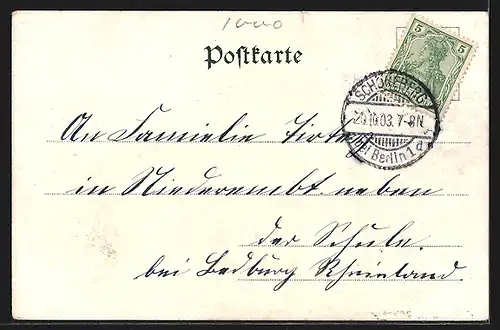 1000
Postkarte
5 5
SCHÖNEBERG
20.10.03. 7-8N.
bei Berlin 1 d
An Familie
in Niederembt neben
der Schule.
bei Bedburg Rheinland.